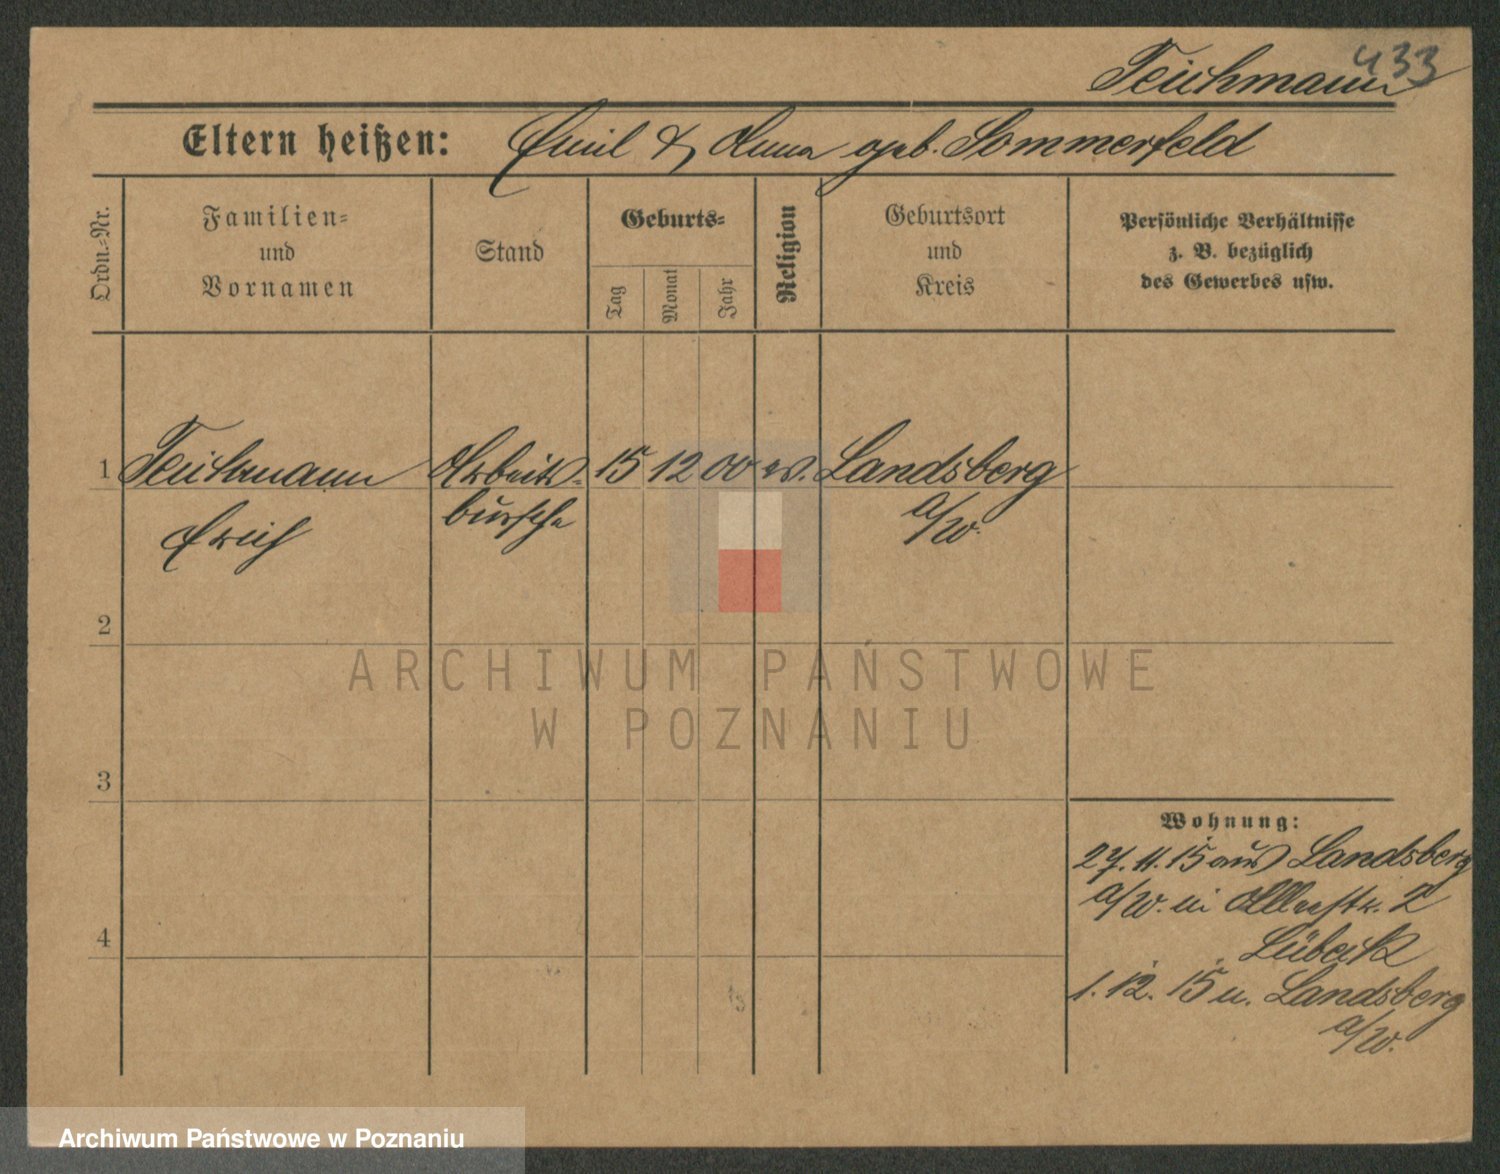 433
Teichmann
Eltern heißen: Emil & Anna geb. Sommerfeld
Ordn.=Nr.
Familien=
und
Vornamen
Stand
Geburts=
Tag
Monat
Jahr
Religion
Geburtsort
und
Kreis
Persönliche Verhältnisse
z. B. bezüglich
des Gewerbes usw.
1 Teichmann Arbeits= 15 12 00 ev. Landsberg
Erich bursche a/W.
2
3
4
Wohnung:
27. 11. 15 aus Landsberg
a/W. in 2
Lübeck
1. 12. 15 n. Landsberg
a/W.
ARCHIWUM PAŃSTWOWE
W POZNANIU
Archiwum Państwowe w Poznaniu